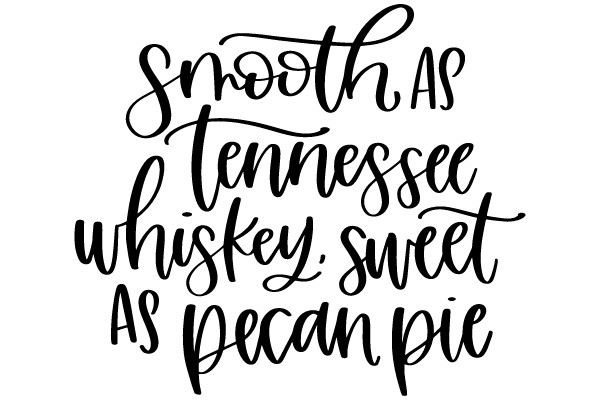 smooth AS
tennessee
whiskey, sweet
AS pecan pie